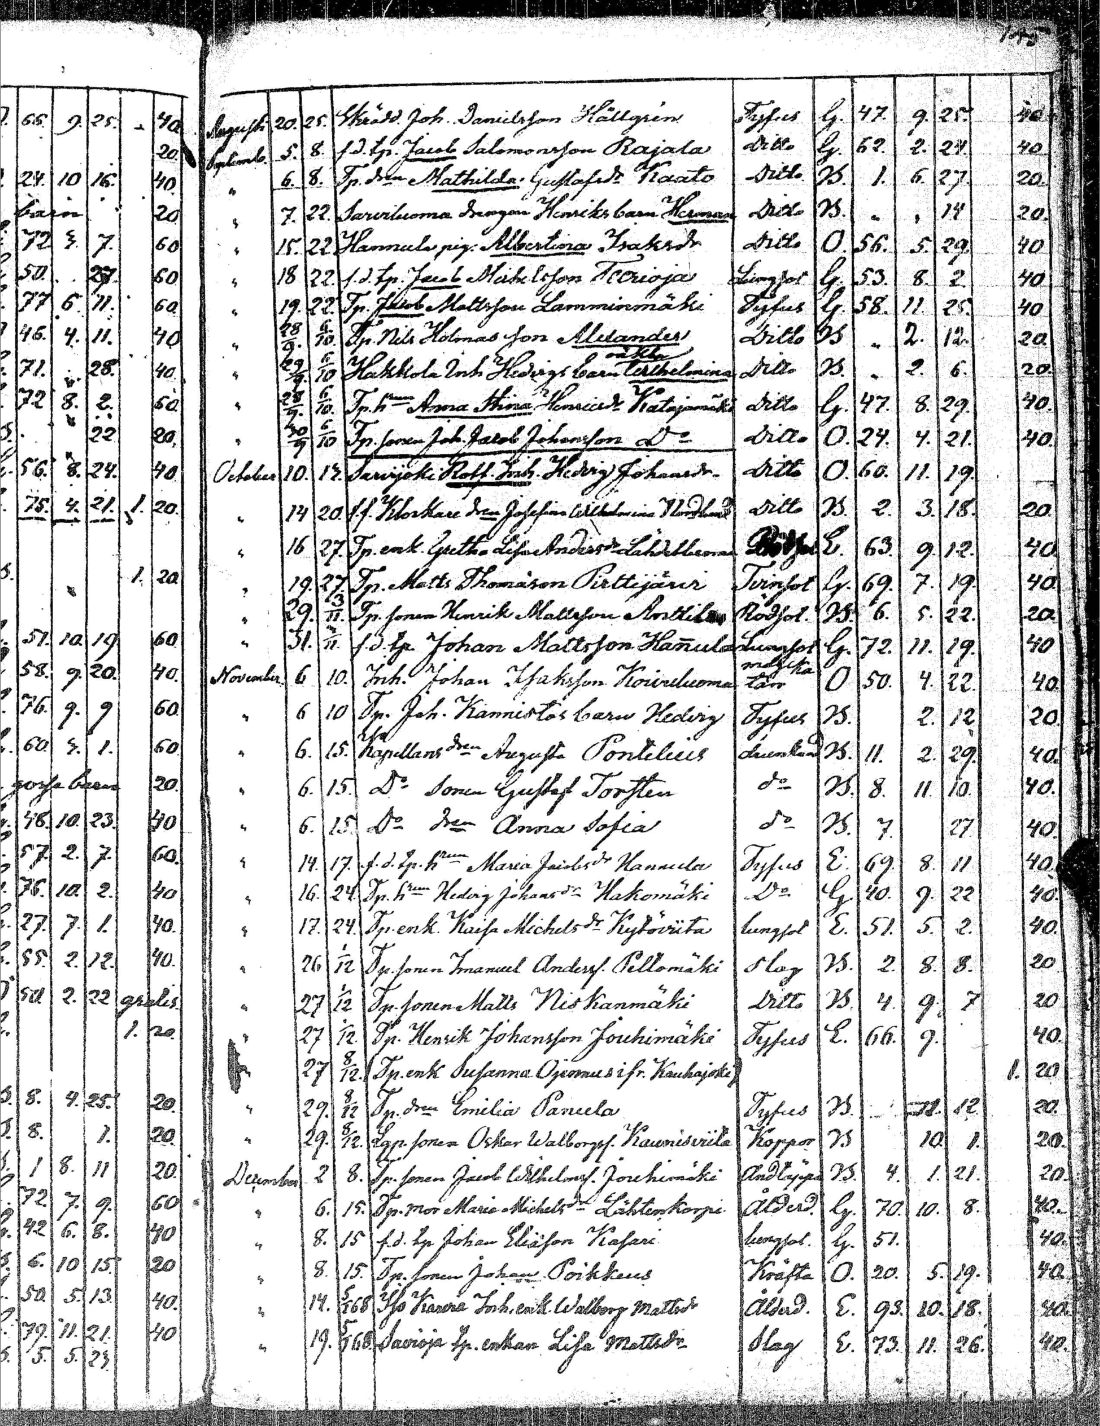 145
66. 9. 25. 40.
20.
24. 10 16. 40
barn 20
72 5. 7. 60
50. 27. 60
77 6 11. 60
46. 4. 11. 40
71. 28. 40.
72 8. 2. 60
22 20.
56. 8. 24. 40
75. 4. 21. 1. 20.
1. 20
51. 10. 19 60
58. 9. 20. 40.
76. 9. 9 60
60 5. 1. 60
gosse barn 20.
48. 10. 23. 40
57. 2. 7. 60.
76. 10. 2. 40
27. 7. 1. 40.
55. 2. 12. 40.
50. 2. 22 gratis
1. 20.
8. 4. 25. 20
8. 1. 20
1 8. 11 20.
72. 7. 9. 60
42 6. 8. 40
6. 10 15 20
50. 5. 13. 40.
79. 11. 21. 40
5. 5. 23.
Augusti 20. 25. Skrädd. Joh. Danielsson Hällgrén Tyfus G. 47. 9. 25. 40.
Septemb. 5. 8. f.d. Tp. Jacob Salomonsson Rajala Ditto G. 62. 2. 24. 40
" 6. 8. Tp. dren Mathilda Gustafsdr Kaato Ditto B. 1. 6. 27 20.
" 7. 22. Sarviluoma drengen Henriks barn Herman Ditto B. " " 14 20.
" 15. 22 Hannula pig. Albertina Isaksdr Ditto O. 56. 5. 29. 40
" 18 22. f.d. Tp. Jacob Michelsson Teerioja Lungsot G. 53. 8. 2. 40.
" 19. 22. Tp. Jacob Mattsson Lamminmäki Tyfus G. 58. 11. 25. 40
" 28/9. 6/10. Tp. Nils Holmas son Alexander Ditto B " 2. 12. 20
" 29/9 6/10 Hakkola Inh Hedvigs barn oäkta Wilhelmina Ditto B. " 2. 6. 20.
" 28/9. 6/10. Tp. hrun Anna Stina Henricsdr Katajamäki Ditto G. 47. 8. 29. 40.
" 30/9 6/10 Tp. sonen Joh. Jacob Johansson Do Ditto O. 24. 4. 21. 40.
October 10. 12. Sarvijoki Inh. Hedvig Johansdr Ditto O. 60. 11. 19.
" 14 20. f.f. Klockare dren Josefina Wilhelmina Ditto B. 2. 3. 18. 20.
" 16 27. Tp. enk. Greta Lisa Andersdr E. 63. 9. 12. 40.
" 19. 27. Tp. Matts Thomasson Pirttijärvi Tvinsot G. 69. 7. 19. 40.
" 29. 3/11. Tp. sonen Henrik Mattsson Anttila Rödsot. B. 6. 5. 22. 20.
" 31. 3/11. f.d. Tp Johan Mattsson Hannula Lungsot G. 72. 11. 19. 40
November 6 10. Inh. Johan Isaksson Koivuluoma O 50. 4. 22. 40.
" 6 10 Tp. Joh. Kannistos barn Hedvig Tyfus B. 2. 12 20
" 6. 15. Kapellans dren Augusta Pontelius drunknad B. 11. 2. 29. 40.
" 6. 15. Do sonen Gustaf Torsten do B. 8. 11. 10. 40.
" 6. 15. Do dren Anna Sofia do B. 7. 27 40.
" 14. 17. f.d. Tp. hrun Maria Jacobsdr Hannula Tyfus E. 69. 8. 11 40.
" 16. 24. Tp. hrun Hedvig Johansdr Hakomäki Do G. 40. 9. 22 40.
" 17. 24. Tp. enk. Kaisa Michelsdr Kytöviita lungsot E. 51. 5. 2. 40.
" 26 1/12 Tp. sonen Imanuel Anderss. Peltomäki Slag B. 2. 8. 8. 20
" 27 1/12 Tp. sonen Matts Niskanmäki Ditto B. 4. 9. 7 20
" 27 1/12 Tp. Henrik Johansson Jouhimäki Tyfus E. 66. 9. 40.
27 8/12. (Tp. enk Susanna fr. Kauhajoki) 1. 20
" 29. 8/12 Tp. dren Emilia Panula Tyfus B. 11. 12. 20.
" 29. 8/12. sonen Oskar Walborgs. Kaunisviita Koppor B 10. 1. 20.
December 2 8. Tp. sonen Jacob Wilhelms. Jouhimäki Andtäppa B. 4. 1. 21. 20.
" 6. 15. Tp. mor Maria Michelsdr Lähtenkorpi Ålderd. G. 70. 10. 8. 40.
" 8. 15 f.d. Tp Johan Eliäson Kasari lungsot. G. 51. 40.
" 8. 15. Tp. sonen Johan Poikkeus Kräfta O. 20. 5. 19. 40.
" 14. 5/1 68 Iso Kaura Inh. enk. Walborg Mattsdr Ålderd. E. 93. 10. 18. 40.
" 19. 5/1 68. Savioja Tp. enkan Lisa Mattsdr Slag E. 73. 11. 26. 40.